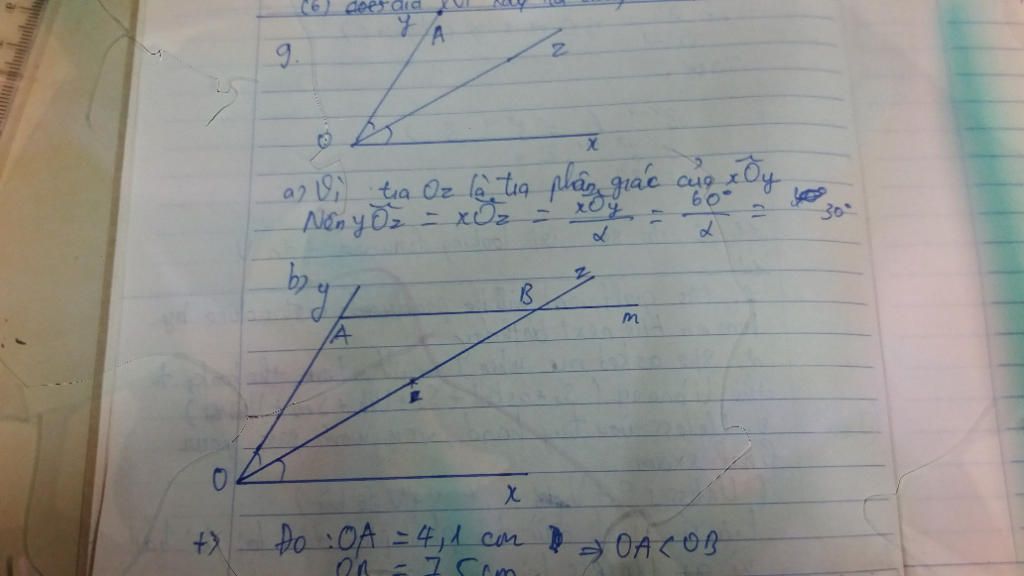 y
A
z
9.
O
x
a) Vì tia Oz là tia phân giác của xÔy
Nên yÔz = xÔz = xÔy/2 = 60°/2 = 30°
b) y
z
A
B
m
O
x
+) Đo : OA = 4,1 cm ⇒ OA < OB
OB = 7,5 cm